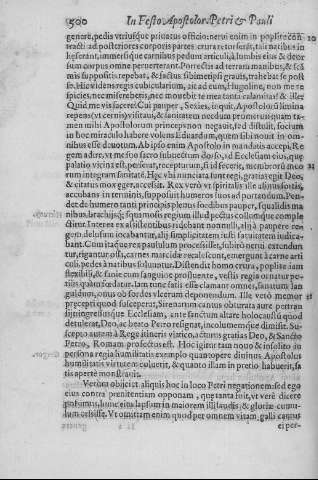 500 In Festo Apostolor. Petri & Pauli
genere, pedis vtriusque priuatus officio: nerui enim in poplite con-
tracti ad posteriores corporis partes crura retorserāt, tali natibus in
hęserant, immersique carnibus pedum articuli, à lumbis eius & deor
sum corpus omne peruerterant. Porrectis ad terram manibus, & scā
mis suppositis repebat, & factus sibimetipsi grauis, trahebat se post
se. Hic videns regis cubicularium, ait ad eum, Hugoline, non me re
spicies, nec misereberis, nec mouebit te mea tanta calamitas? & ille:
Quid me vis facere? Cui pauper, Sexies, inquit, Apostolorū limina
repens (vt cernis) visitaui, & sanitatem necdum promerui quam ta
men mihi Apostolorum princeps non negauit, sed distulit, socium
in hoc miraculo habere volens Eduardum, quem sibi nouit in om-
nibus esse deuotum. Ab ipso enim Apostolo in mandatis accepi, Re
gem adire, vt me suo sacro subuectum dorso, ad Ecclesiam eius, quę
palatio vicina est, perducat, recepturum, si id fecerit, membrorū meo
rum integram sanitatē. Hęc vbi nunciata sunt regi, gratias egit Deo,
& citatus mox eger, accessit. Rex verò vt spiritalis ille asinus fortis,
accubans in terminis, supposuit humeros suos ad portandum. Pen-
det de humero tanti principis plenus sordibus pauper, squalidis ma
nibus, brachijsq; squamosis regium illud pectus collumque comple
ctitur. Interea ex assistentibus ridebant nonnulli, alij à paupere re-
gem delusum iocabantur, alij simplicitatem iusti fatuitatem iudica-
bant. Cum itaque rex paululum processisset, subitò nerui extendun
tur, rigantur ossa, carnes marcidæ recalescunt, emergunt à carne arti
culi, pedes à natibus soluuntur. Distendit homo crura, poplite iam
flexibili, & sanie cum sanguine profluente, vestis regia ornatur po-
tiùs quàm fœdatur. Iam tunc satis esse clamant omnes, sanatum lan
galdum, onus ob sordes vlcerum deponendum. Ille verò memor
præcepti quod susceperat, Sirenarum cantus obturata aure pertran
siij ingressusque Ecclesiam, ante sanctum altare holocaustū quod
detulerat, Deo, ac beato Petro resignat, incolumemque dimisit. Su-
scepto autem à Rege itineris viatico, acturus gratias Deo, & Sancto
Petro, Romam profectus est. Hoc igitur tam nouo & insolito in
persona regia humilitatis exemplo quantopere diuinus Apostolus
humilitatis virtutem coluerit, & quanto illam in pretio habuerit, sa
tis apertè monstrauit.
Verùm obijciet aliquis hoc in loco Petri negationem: sed ego
eius contra pœnitentiam opponam, quę tanta fuit, vt verè dicere
possumus, hunc eius lapsum in maiorem illi laudis, & gloriæ cumu-
lum cessisse. Vt omittam enim quod per omnem vitam, galli cantus
ei per-